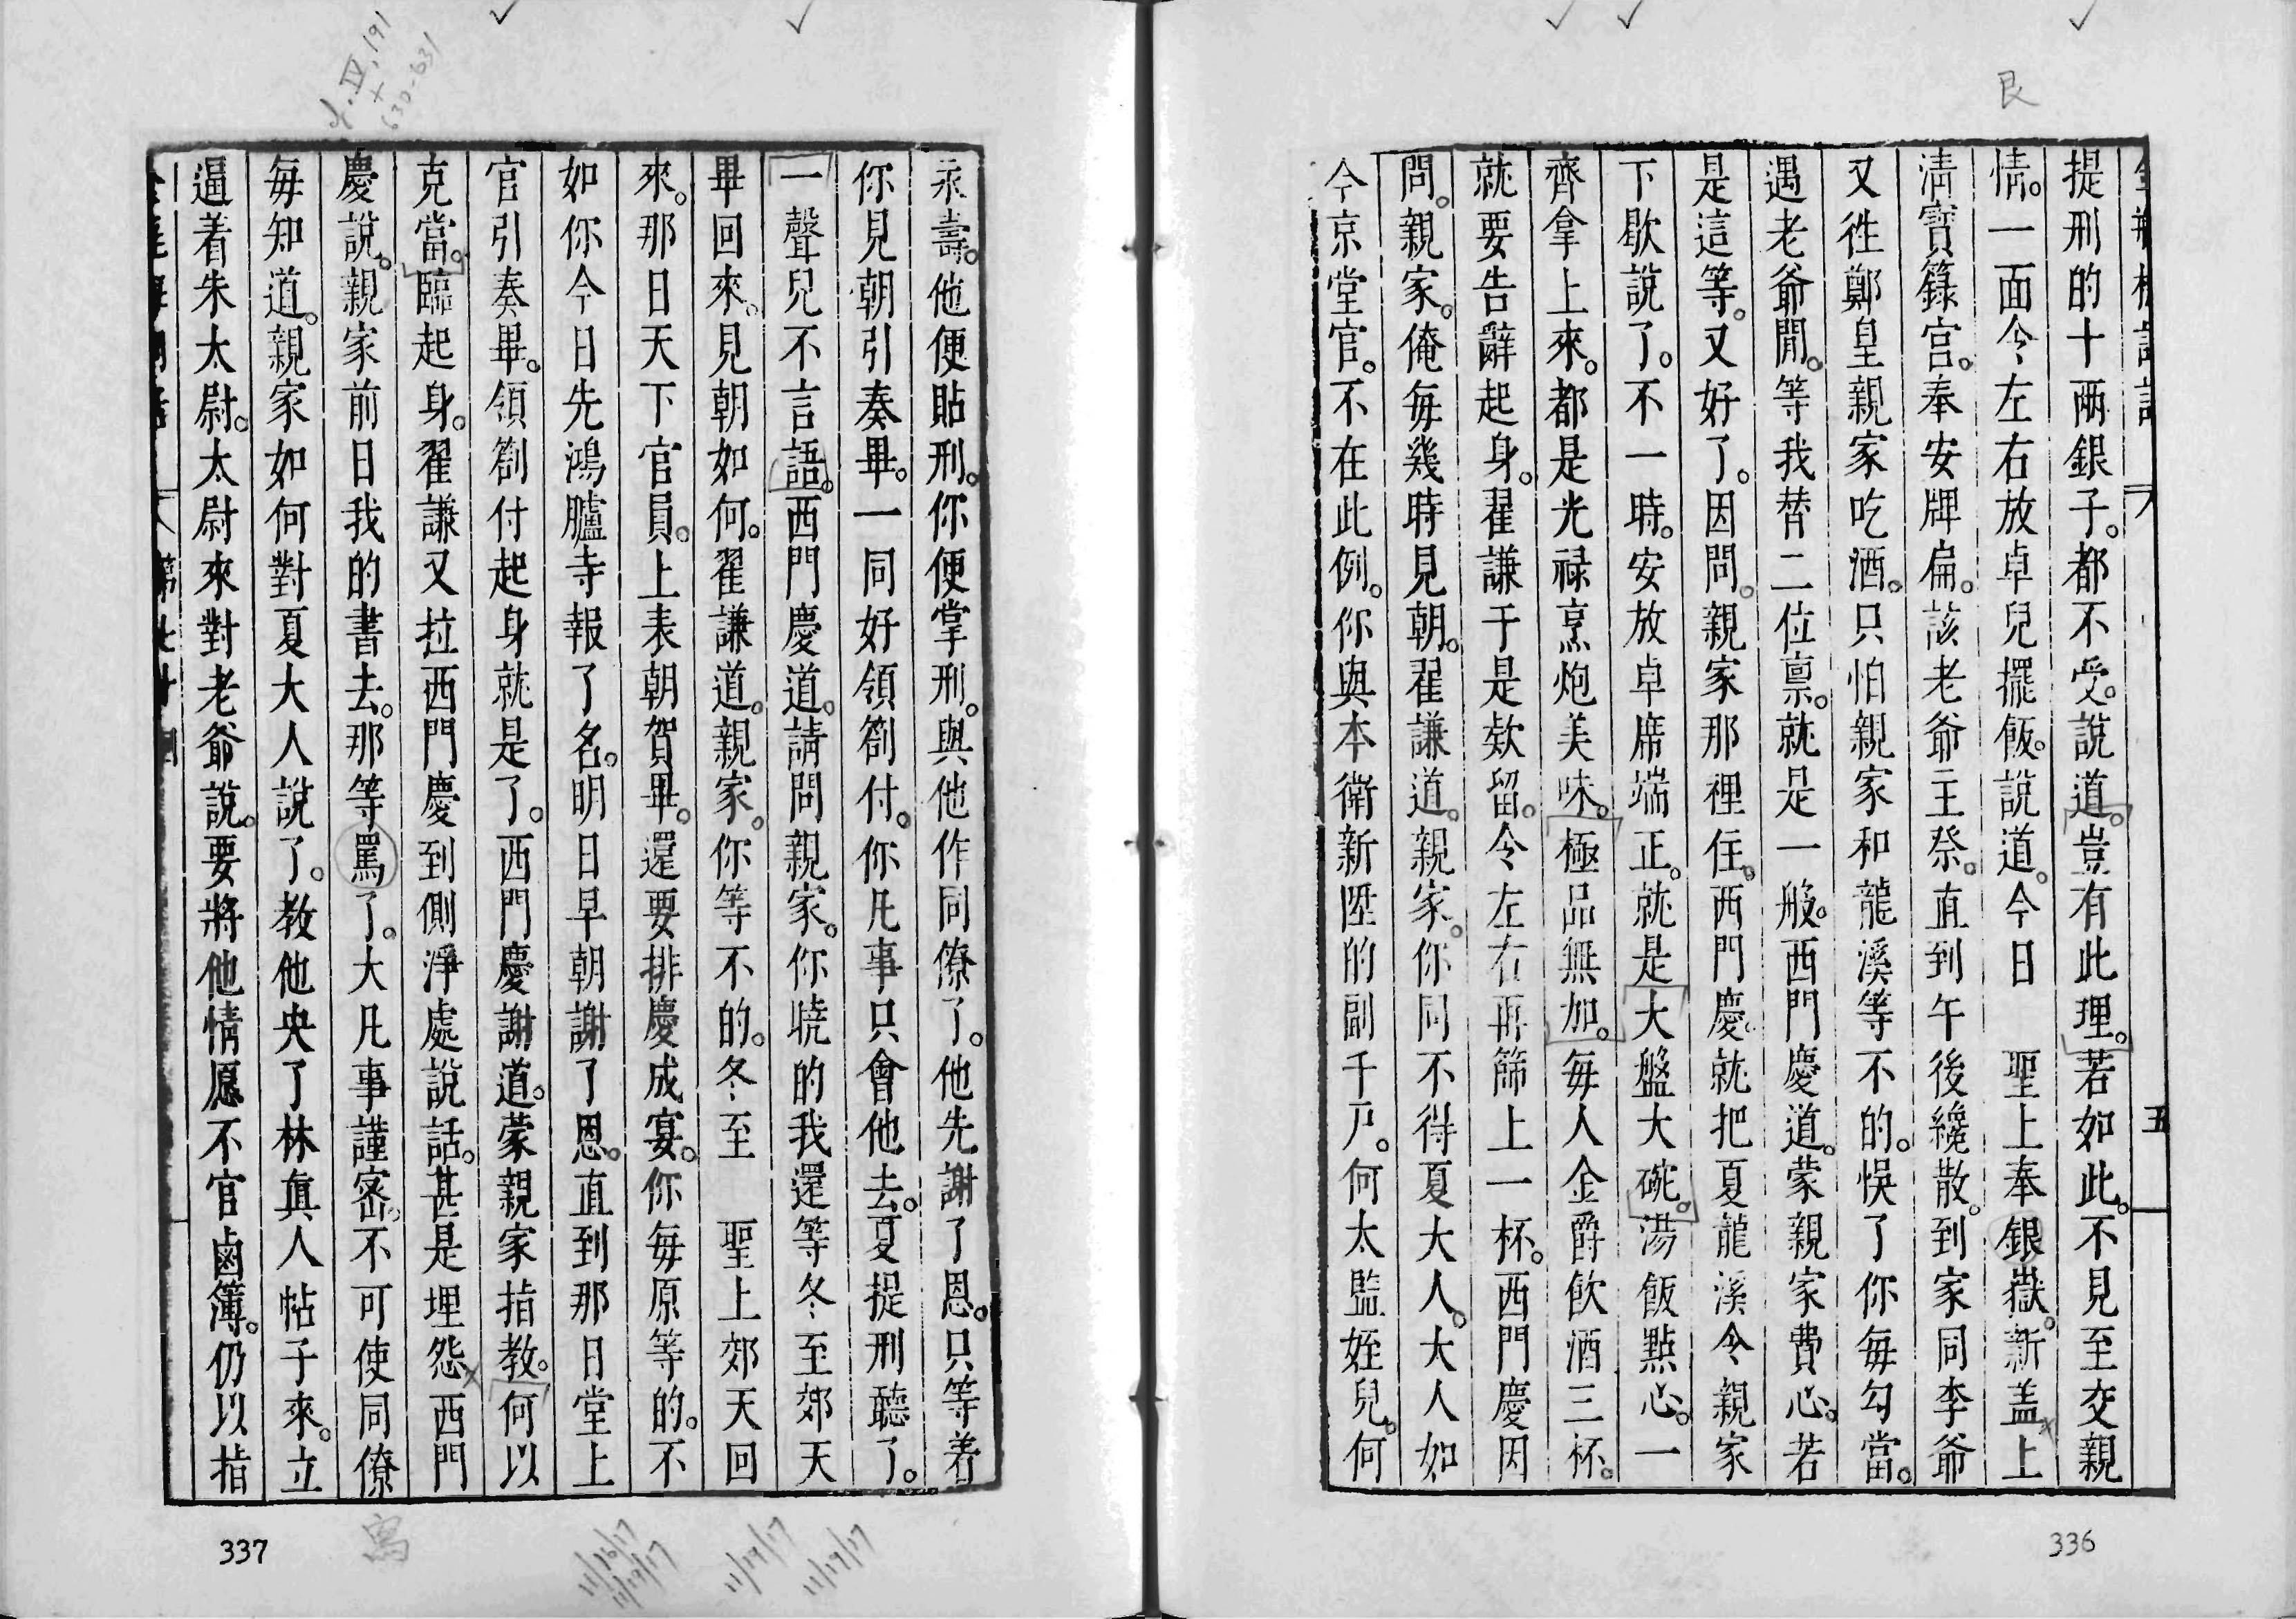 艮
提刑的十兩銀子。都不受。說道。豈有此理。若如此。不見至交親
情。一面令左右放卓兒擺飯。說道。今日　聖上奉銀嶽。新盖上
清寶籙宮。奉安牌扁。該老爺主祭。直到午後纔散。到家同李爺
又徃鄭皇親家吃酒。只怕親家和龍溪等不的。悞了你每勾當。
遇老爺閒。等我替二位禀。就是一般。西門慶道。蒙親家費心。若
是這等。又好了。因問。親家那裡住。西門慶。就把夏龍溪令親家
下歇說了。不一時。安放卓席端正。就是大盤大碗。湯飯點心。一
齊拿上來。都是光禄烹炮美味。極品無加。每人金爵飲酒三杯。
就要告辭起身。翟謙于是欵留。令左右再篩上一杯。西門慶因
問。親家。俺每幾時見朝。翟謙道。親家。你同不得夏大人。大人如
今京堂官。不在此例。你與本衛新陞的副千戶。何太監姪兒。何
永壽。他便貼刑。你便掌刑。與他作同僚了。他先謝了恩。只等着
你見朝引奏畢。一同好領劄付。你凡事只會他去。夏提刑聽了。
一聲兒不言語。西門慶道。請問親家。你曉的我還等冬至郊天
畢回來。見朝如何。翟謙道。親家。你等不的。冬至　聖上郊天回
來。那日天下官員。上表朝賀畢。還要排慶成宴。你每原等的。不
如你今日先鴻臚寺報了名。明日早朝謝了恩。直到那日堂上
官引奏畢。領劄付起身就是了。西門慶謝道。蒙親家指教。何以
克當。臨起身。翟謙又拉西門慶到側淨處說話。甚是埋怨西門
慶說。親家前日我的書去。那等罵了。大凡事謹密。不可使同僚
每知道。親家如何對夏大人說了。教他央了林真人帖子來。立
逼着朱太尉。太尉來對老爺說。要將他情愿不官鹵簿。仍以指
五
336
337
寫